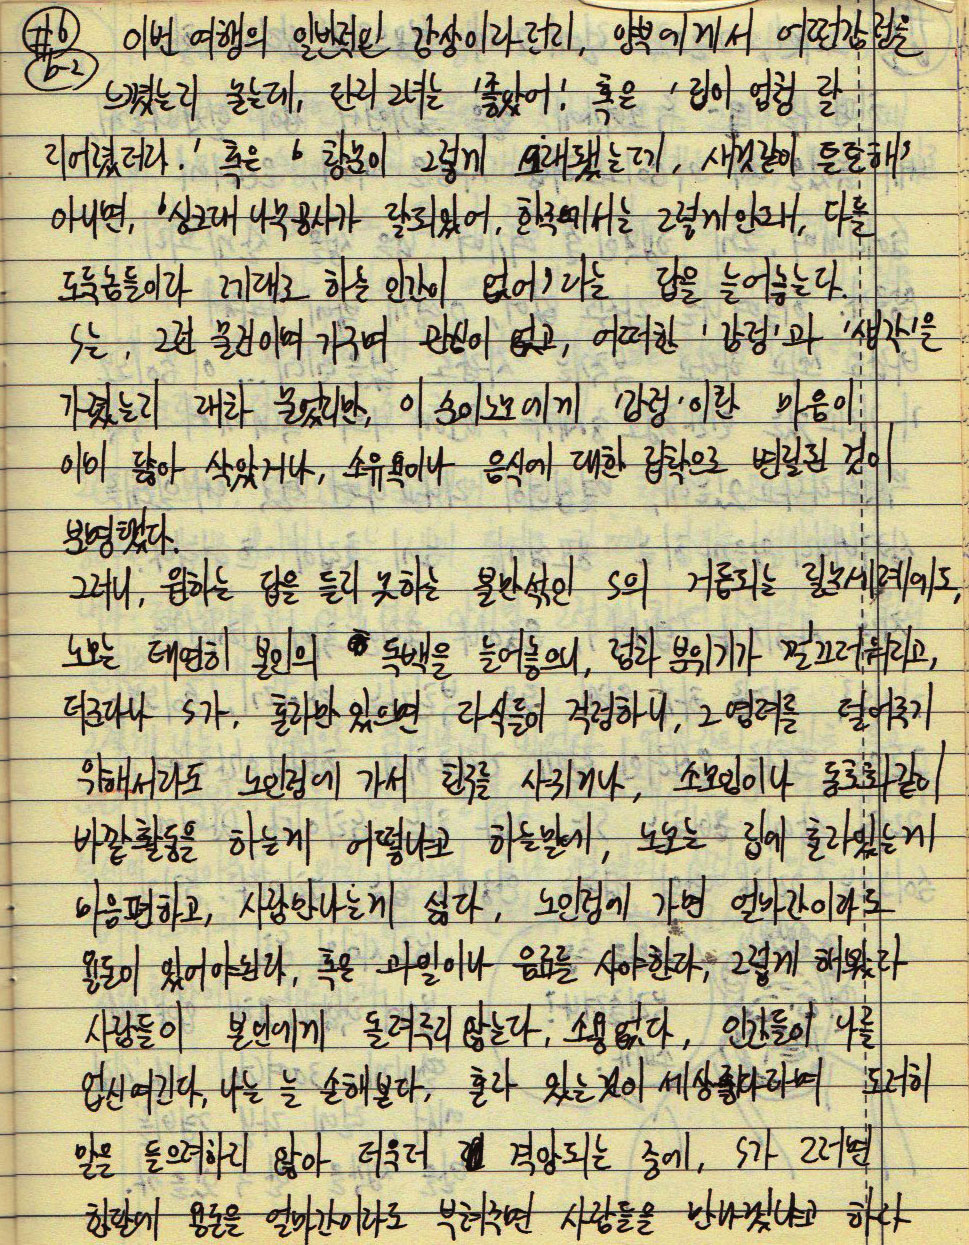 #6
6-2
이번 여행의 일반적인 감상이라던지, 양부에게서 어떤감정을
느꼈는지 묻는데, 단지 그녀는 '좋았어!' 혹은 '집이 엄청 잘
지어졌더라.' 혹은 '창문이 그렇게 오래됐는데, 새것같이 튼튼해'
아니면, '싱크대 나무공사가 잘되있어, 한국에서는 그렇게안돼, 다들
도둑놈들이라 제대로 하는 인간이 없어' 다는 답을 늘어놓는다.
S는, 그런 물건이며 가구며 관심이 없고, 어떠한 '감정'과 '생각'을
가졌는지 재차 물었지만, 이 순이노모에게 '감정'이란 마음이
이미 닳아 삭았거나, 소유욕이나 음식에 대한 집착으로 변질된 것이
분명했다.
그러니, 원하는 답을 듣지 못하는 불만석인 S의 거듭되는 질문세례에도,
노모는 태연히 본인의 독백을 늘어놓으니, 점차 분위기가 껄끄러워지고,
더군다나 S가, 혼자만 있으면 자식들이 걱정하니, 그 염려를 덜어주기
위해서라도 노인정에 가서 친구를 사귀거나, 소모임이나 동호회같이
바깥활동을 하는게 어떻냐고 하는말에, 노모는 집에 혼자있는게
마음편하고, 사람만나는게 싫다, 노인정에 가면 얼마간이라도
용돈이 있어야된다, 혹은 과일이나 음료를 사야한다, 그렇게 해봤자
사람들이 본인에게 돌려주지 않는다, 소용없다, 인간들이 나를
업신여긴다, 나는 늘 손해본다, 혼자 있는것이 세상좋다라며 도저히
말을 들으려하지 않아 더욱더 격앙되는 중에, S가 그러면
한달에 용돈을 얼마간이라도 부쳐주면 사람들을 만나겠냐고 하자